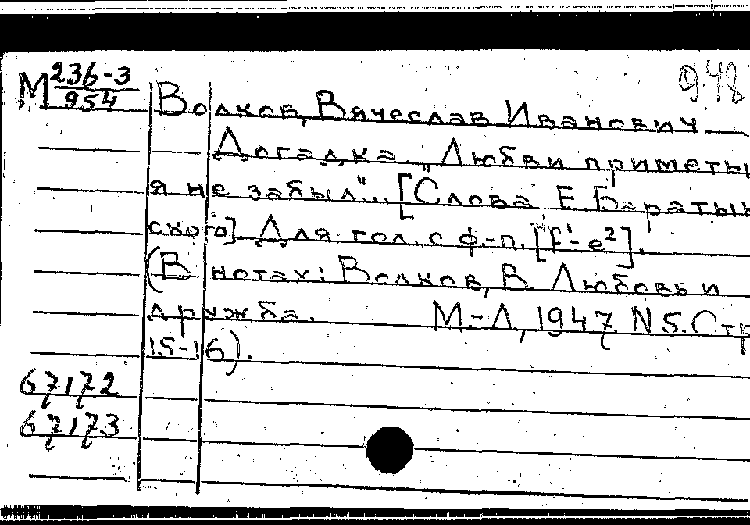 М 236-3
954
948
Волков, Вячеслав Иванович.
Догадка. „Любви приметы
я не забыл"... [Слова Е. Баратын
ского]. Для гол. с ф.-п. [f¹-e²].
(В нотах: Волков, В. Любовь и
дружба. М.-Л, 1947 N 5. Стр
15-16).
67172
67173